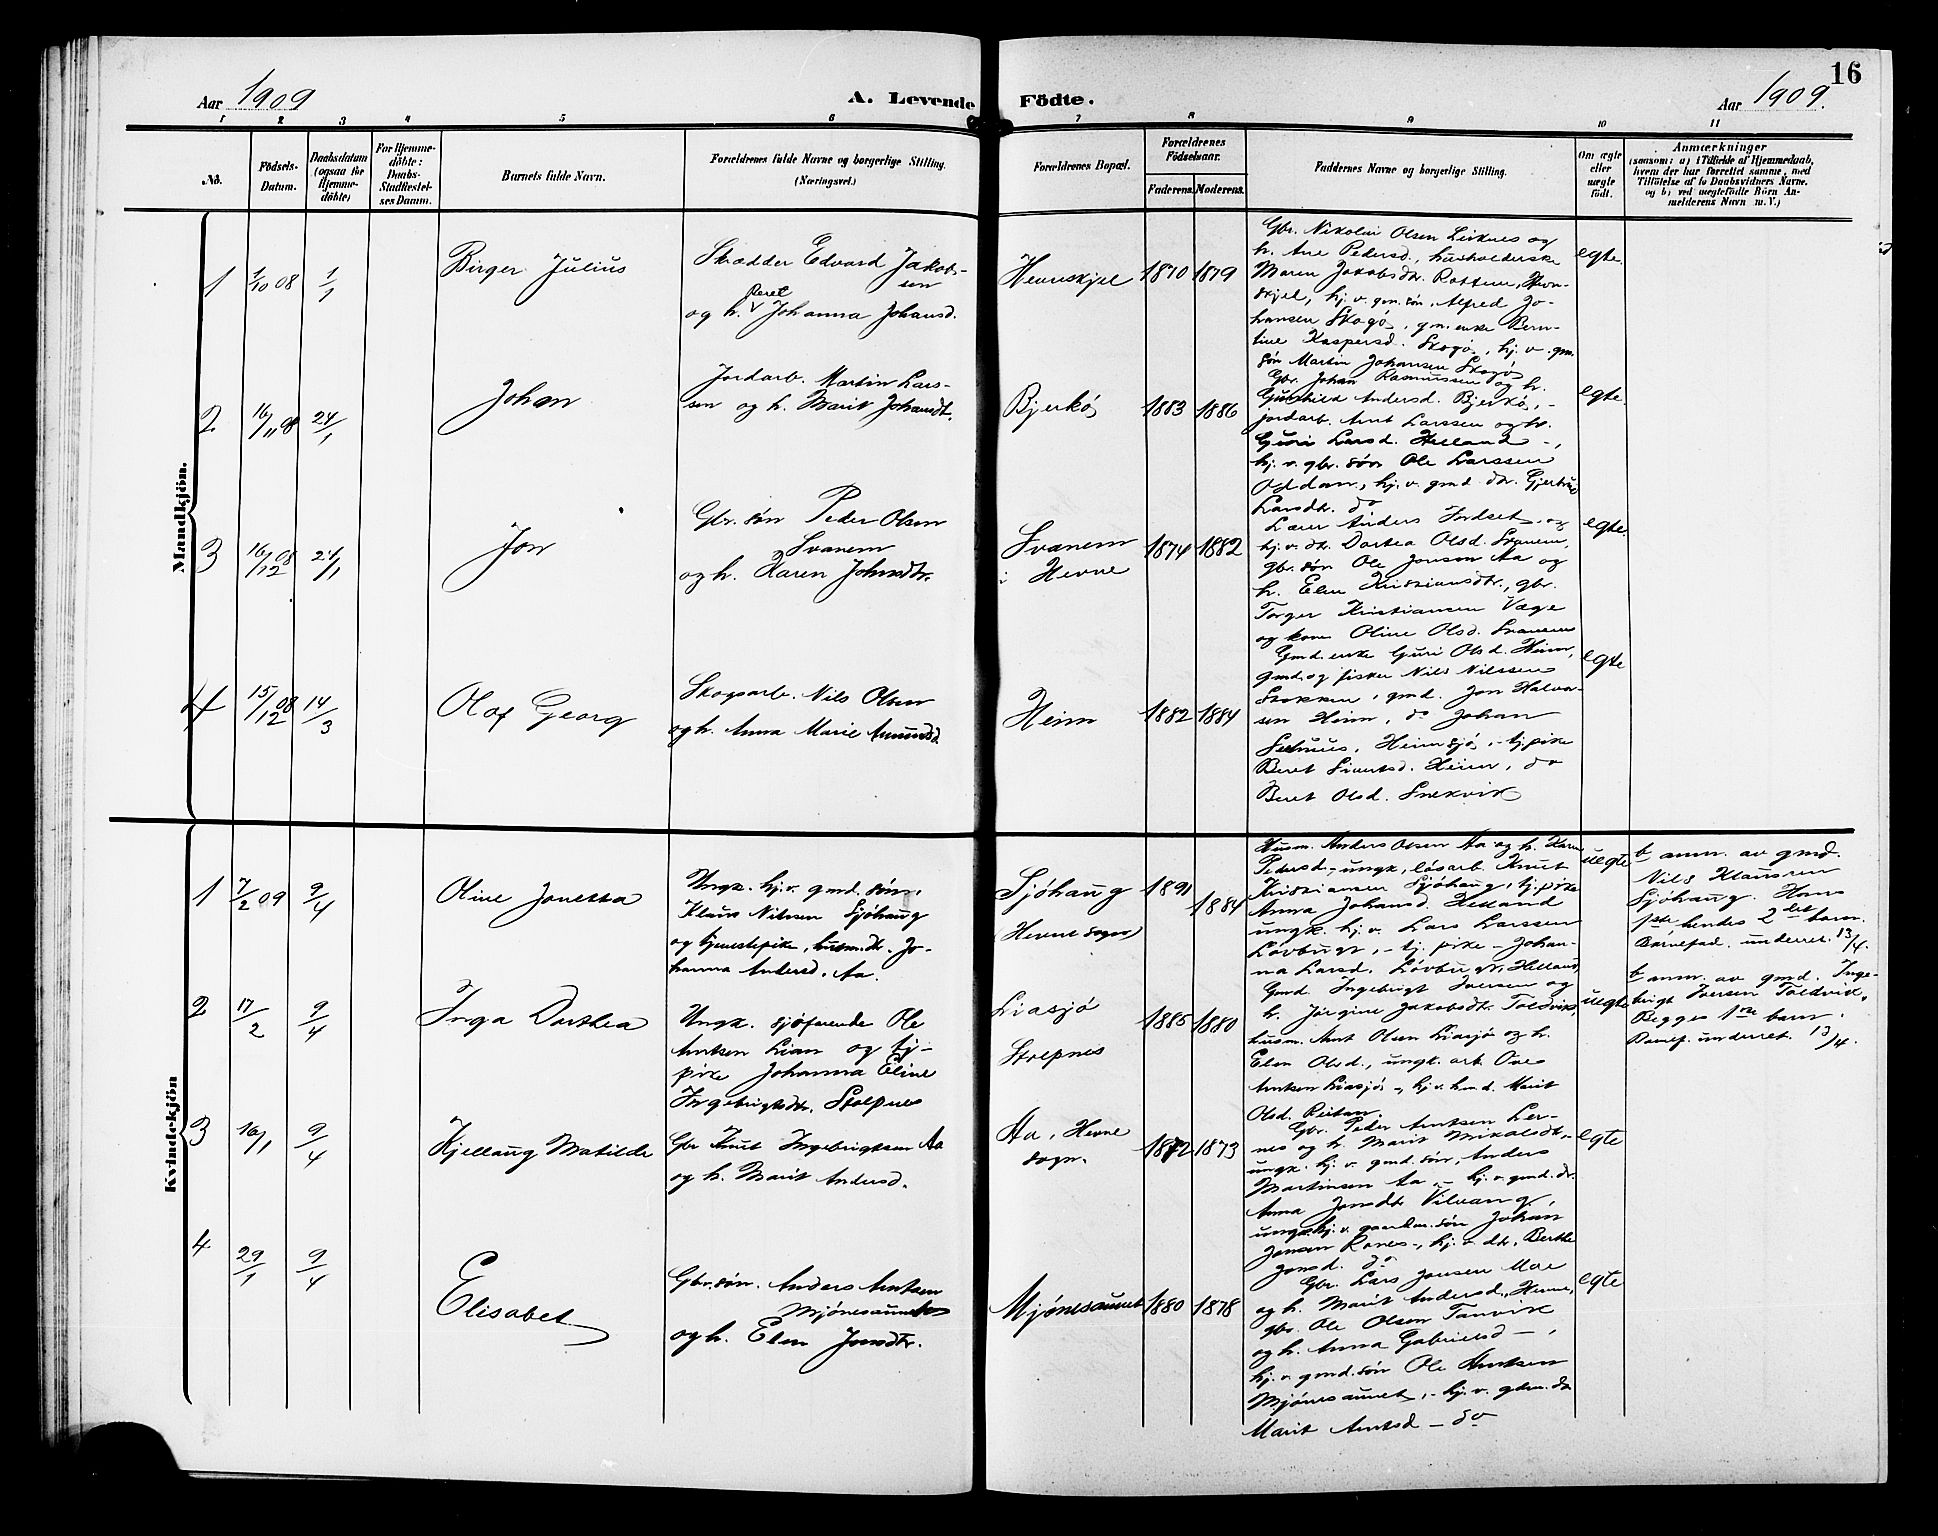 16
Aar 1909
A. Levende
Födte.
Aar 1909.
1 2 3 4 5 6 7 8 9 10 11
No.
Födsels-
Datum.
Daabsdatum
(ogsaa for
Hjemme-
döbte)
For Hjemme-
döbte:
Daabs-
Stadfæstel-
ses Datum.
Barnets fulde Navn.
Forældrenes fulde Navne og borgerlige Stilling.
(Næringsvei.)
Forældrenes Bopæl.
Forældrenes
Födselsaar.
Faderens. Moderens.
Faddernes Navne og borgerlige Stilling.
Om ægte
eller
uægte
födt.
Anmærkninger
(saasom: a) i Tilfælde af Hjemmedaab,
hvem der har forrettet samme, med
Tilföielse af to Daabsvidners Navne,
og b) ved uægtefödte Börn An-
melderens Navn m. V.)
Mandkjön.
1
1/10 08
1/1
Birger Julius
Skrædder Edvard Jakob-
sen
Beret
og h. Johanna Johansd.
Hevneskjel
1870 1879
Gbr. Nikolai Olsen Leiknes og
h. Ane Pedersd., husholderske
Maren Jakobsdtr. Rottem, Hevn-
skjel, hj. v. gm. søn, Alfred Jo-
hansen Skogø, gm. enke Bern-
tine Kaspersd. Skogø, hj. v. gm.
søn Martin Johansen Skogø
egte.
2
16/11 08
24/1
Johan
Jordarb. Martin Lars-
sen og h. Marit Johansdt.
Bjerkø
1883 1886
Gbr. Johan Rasmussen og h.
Gunhild Andersd. Bjerkø, -
jordarb. Arnt Larssen og h.
Guri Larsd. Helland -,
hj. v. gbr. søn Ole Larssen
Oddan, hj. v. gmd. dtr. Gjertrud
Larsdtr. do
egte.
3
16/12 08
24/1
Jon
Gbr. søn Peder Olsen
Svanem
og h. Karen Johnsdtr.
Svanem
i Hevne
1874 1882
Lærer Anders Fordset og
hj. v. dtr. Dortea Olsd. Svanem,
gbr. søn Ole Jonson Aa og
h. Elen Kristiansdtr., gbr.
Torger Kristiansen Vage
og kone Oline Olsd. Svanem
egte.
4
15/12 08
14/3
Olaf Georg
Skogsarb. Nils Olsen
og h. Anna Marie Amundsd.
Heim
1882 1884
Gmd. enke Guri Olsd. Heim,
gmd. og fisker Nils Nilssen
Stokken, gmd. Jon Halvor-
sen Heim, do Johan
Selnus, Heimsjø, - tj. pike
Beret Sivertsd. Heim, do
Beret Olsd. Snekvik
egte
Kvindekjön
1
7/2 09
9/4
Oline Jonetta
Ungk. hj. v. gmd. søn,
Klaus Nilsen Sjöhaug
og tjenestepike, husm. dt. Jo-
hanna Andersd. Aa.
Sjöhaug
(Hevne sogn)
1891
1884
Husm. Anders Olsen Aa og h. Karen
Pedersd. - ungk. løsarb. Knut
Kristiansen Sjöhaug, tj. pike
Anna Johansd. Helland
ungk. hj. v. Lars Larssen
Lövbugt, - tj. pike - Johan-
na Larsd. Lövbugt, Helland,
uegte
b anm. av gmd.
Nils Klaussen
Sjöhaug. Hans
1ste hendes 2det barn.
Barnefad. underret. 13/4.
2
17/2
9/4
Inga Dorthea
Ungk. sjöfarende Ole
Arntsen Lian og tj-
pike Johanna Eline
Ingebrigtsdtr. Stolpnes
Liasjø
Stolpnes
1885 1880
Gmd. Ingebrigt Iversen og
h. Jørgine Jakobsdt. Toldvik,
husm. Arnt Olsen Liasjø og h.
Elen Olsd., ungk. arb. Ove
Arntsen Liasjø -, hj. v. hmd. Marit
Olsd. Reitan.
uegte
b anm. av gmd. Inge-
brigt Iversen Toldvik.
Begges 1ste barn.
Barnef. underret. 13/4.
3
16/1
9/4
Kjellaug Matilde
Gbr Knut Ingebrigtsen Aa
og h. Marit Andersd.
Aa, Hevne
sogn.
1872 1873
Gbr. Peder Arntsen Ler-
nes og h. Marit Mikalsdt.
ungk. hj. v. gmd. søn, Anders
Martinsen Aa, - hj. v. gmd. dt.
Anna Jonsdt. Vilvang,
ungk. hj. v. gaardm. søn Johan
Jonsen Rones -, hj. v. dtr. Berthe
Jonsd. do
egte
4
29/1
9/4
Elisabet
Gbr. søn. Anders Arntsen
Mjönesaunet
og h. Elen Jonsdtr.
Mjönesaunet
1880 1878
Gbr. Lars Jonsen Moe
og h. Marit Andersd., Hevne,
gbr. Ole Olson Tanvik
og h. Anna Gabrielsd -,
hj. v. gmd. søn Ole Arntsen
Mjönesaunet, - hj. v. gbm. dt.
Marit Arntsd - do
egte